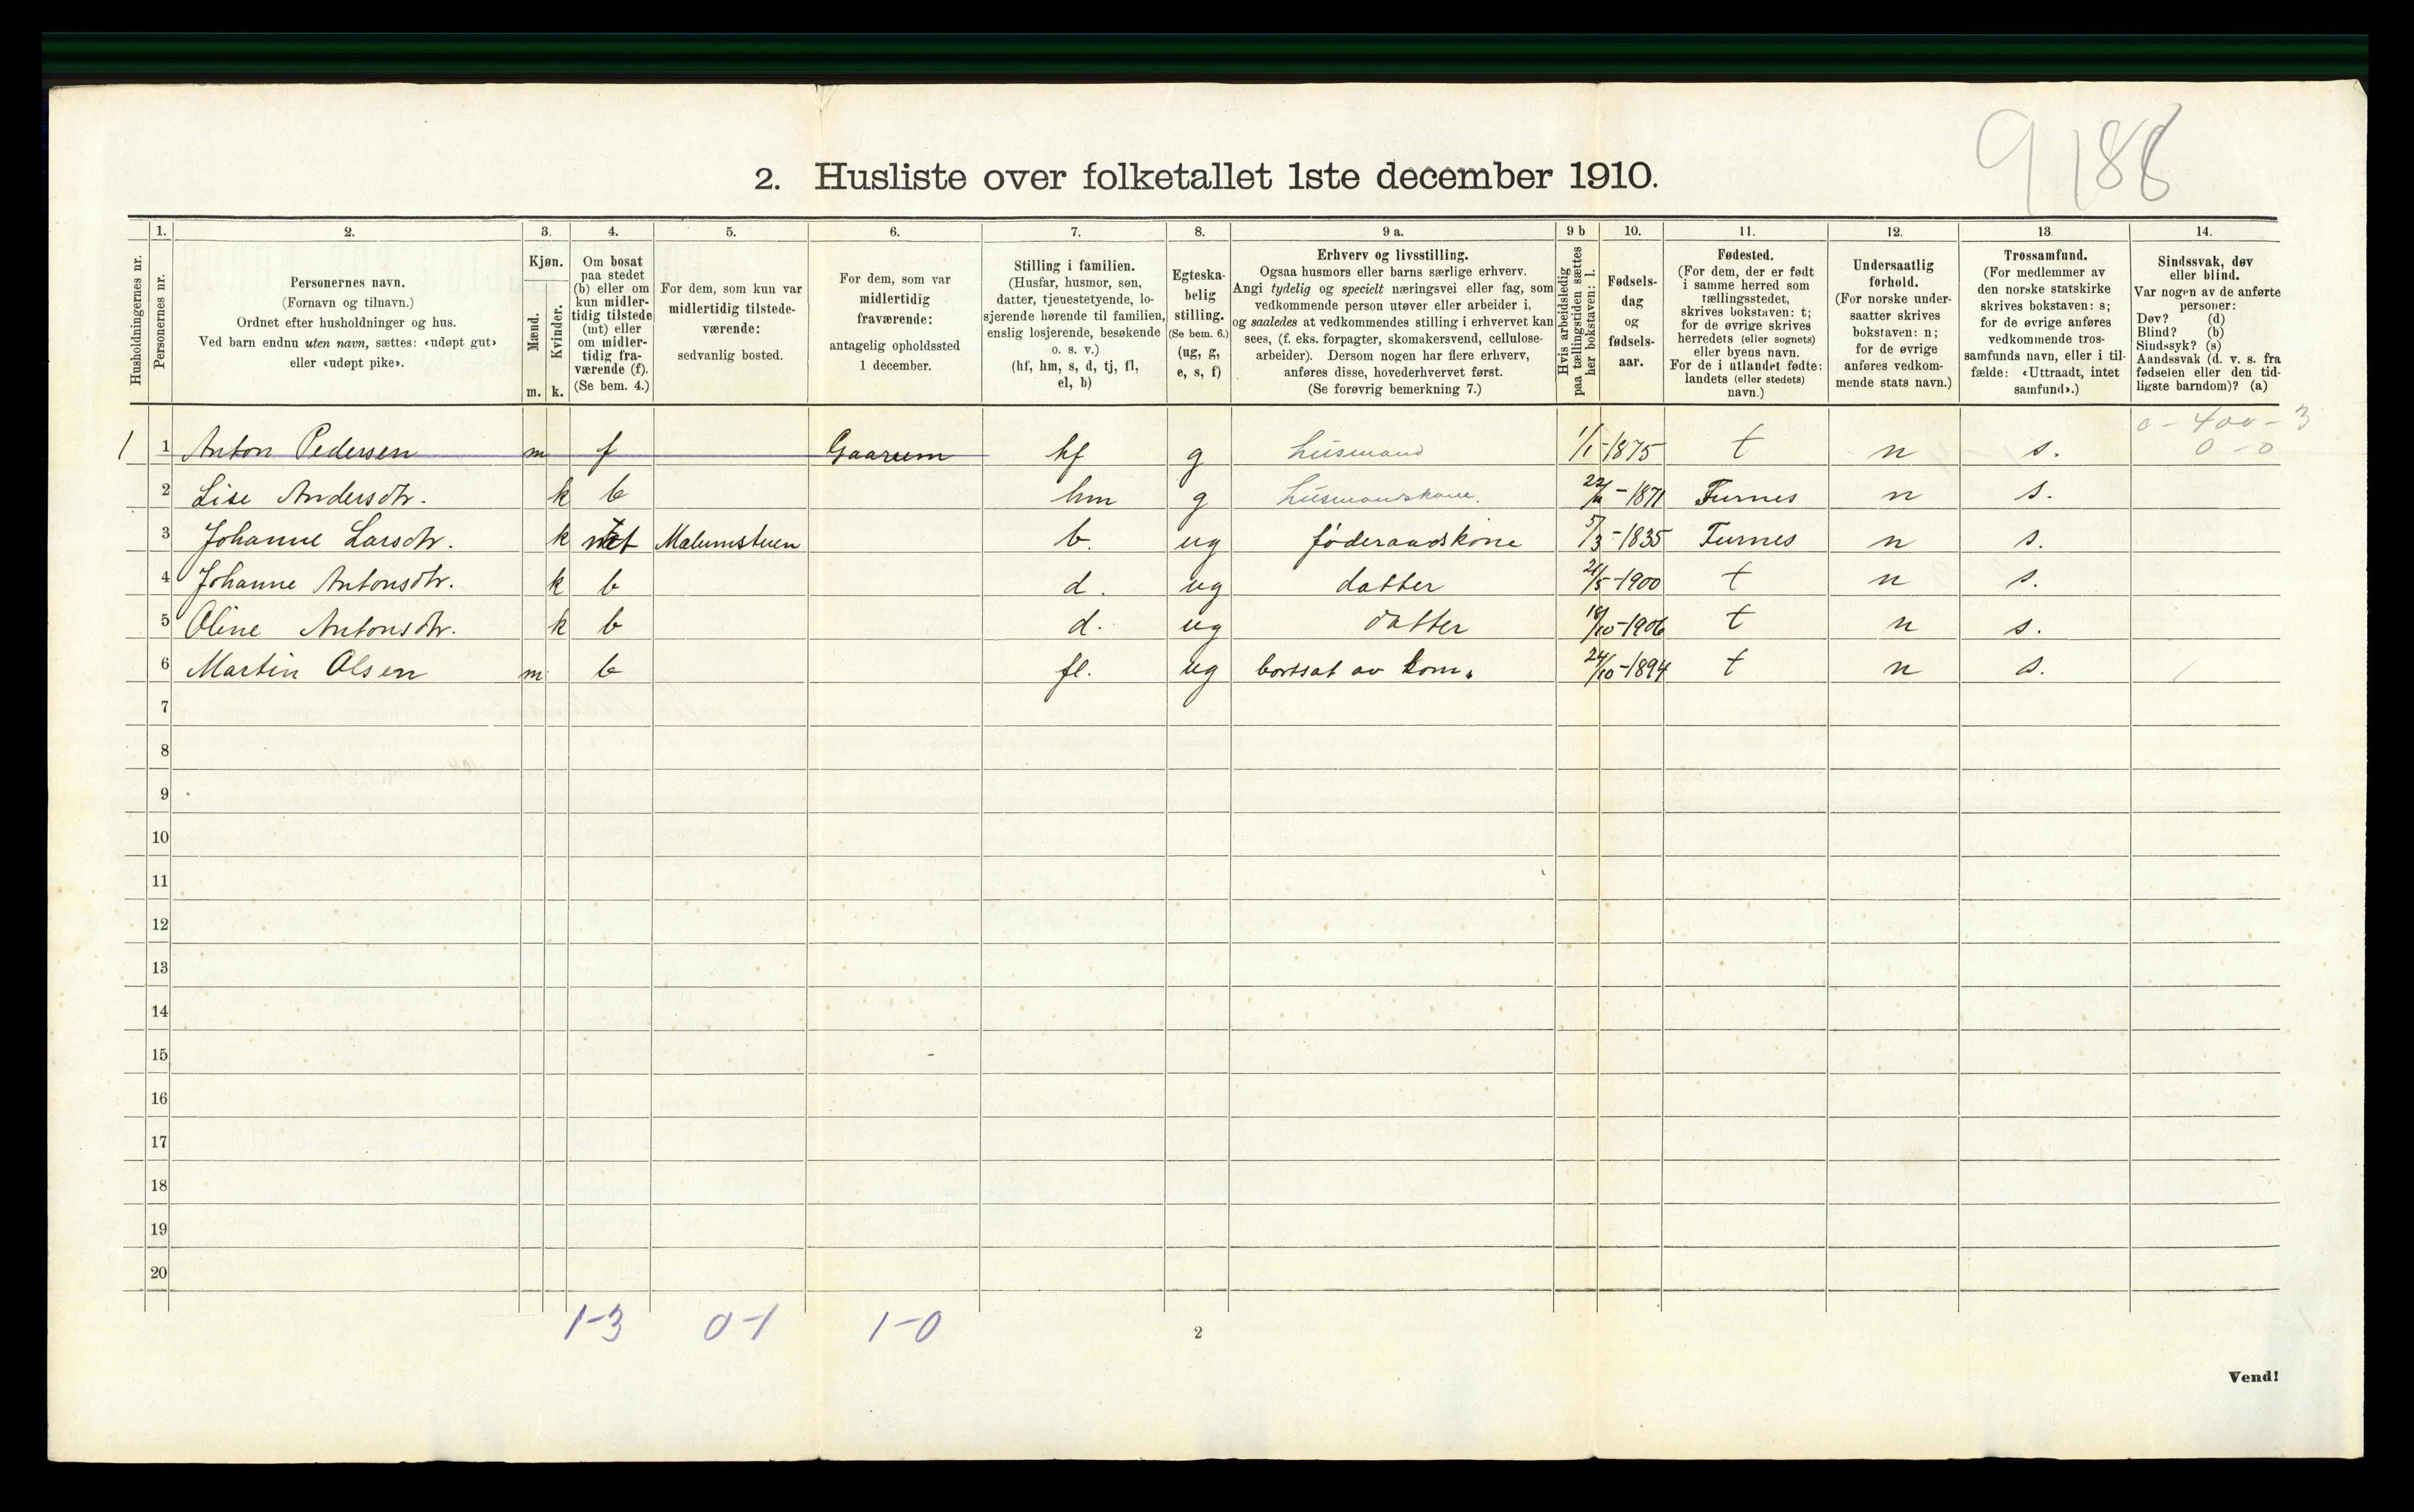 9 188
2. Husliste over folketallet 1ste december 1910.
1. 2. 3. 4. 5. 6. 7. 8. 9 a. 9 b 10. 11. 12. 13. 14.
Husholdningernes nr.
Personernes nr.
Personernes navn.
(Fornavn og tilnavn.)
Ordnet efter husholdninger og hus.
Ved barn endnu uten navn, sættes: «udøpt gut»
eller «udøpt pike».
Kjøn.
Mænd.
Kvinder.
m. k.
Om bosat
paa stedet
(b) eller om
kun midler-
tidig tilstede
(mt) eller
om midler-
tidig fra-
værende (f).
(Se bem. 4.)
For dem, som kun var
midlertidig tilstede-
værende:
sedvanlig bosted.
For dem, som var
midlertidig
fraværende:
antagelig opholdssted
1 december.
Stilling i familien.
(Husfar, husmor, søn,
datter, tjenestetyende, lo-
sjerende hørende til familien,
enslig losjerende, besøkende
o. s. v.)
(hf, hm, s, d, tj, fl,
el, b)
Egteska-
belig
stilling.
(Se bem. 6.)
(ug, g,
e, s, f)
Erhverv og livsstilling.
Ogsaa husmors eller barns særlige erhverv.
Angi tydelig og specielt næringsvei eller fag, som
vedkommende person utøver eller arbeider i,
og saaledes at vedkommendes stilling i erhvervet kan
sees, (f. eks. forpagter, skomakersvend, cellulose-
arbeider). Dersom nogen har flere erhverv,
anføres disse, hovederhvervet først.
(Se forøvrig bemerkning 7.)
Hvis arbeidsledig
paa tællingstiden sættes
her bokstaven: l.
Fødsels-
dag
og
fødsels-
aar.
Fødested.
(For dem, der er født
i samme herred som
tællingsstedet,
skrives bokstaven: t;
for de øvrige skrives
herredets (eller sognets)
eller byens navn.
For de i utlandet fødte:
landets (eller stedets)
navn.)
Undersaatlig
forhold.
(For norske under-
saatter skrives
bokstaven: n;
for de øvrige
anføres vedkom-
mende stats navn.)
Trossamfund.
(For medlemmer av
den norske statskirke
skrives bokstaven: s;
for de øvrige anføres
vedkommende tros-
samfunds navn, eller i til-
fælde: «Uttraadt, intet
samfund».)
Sindssvak, døv
eller blind.
Var nogen av de anførte
personer:
Døv? (d)
Blind? (b)
Sindssyk? (s)
Aandssvak (d. v. s. fra
fødselen eller den tid-
ligste barndom)? (a)
0 - 400 - 3
1 1 Anton Pedersen m f Gaarum hf g husmand 1/1-1875 t n s. 0 - 0
2 Lise Andersdtr. k b hm g husmandskone. Furnes n s.
3 Johanne Larsdtr. k Malumstuen b. ug føderaadskone 5/3-1835 Furnes n s.
4 Johanne Antonsdtr. k b d. ug datter 21/5-1900 t n s.
5 Oline Antonsdtr. k b d. ug datter 18/10-1906 t n s.
6 Martin Olsen m b fl. ug bortsat av kom. 24/10-1894 t n s.
7
8
9
10
11
12
13
14
15
16
17
18
19
20
1-3 0-1 1-0
2
Vend!